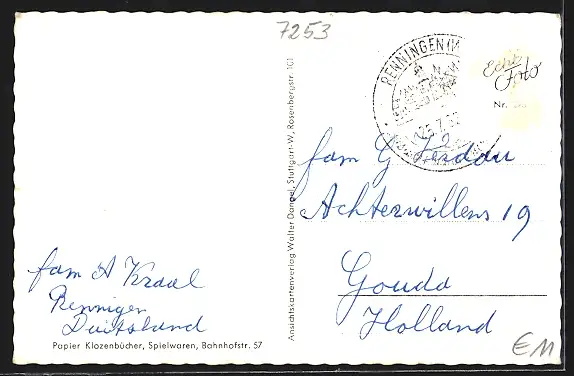 7253
RENNINGEN
25.7.
Echt
Foto
Nr.
Ansichtskartenverlag Walter Dangel, Stuttgart-W, Rosenbergstr. 101
fam G
Achterwillens 19
Gouda
Holland
fam A Kraal
Renningen
Duitsland
Papier Klozenbücher, Spielwaren, Bahnhofstr. 57
€M